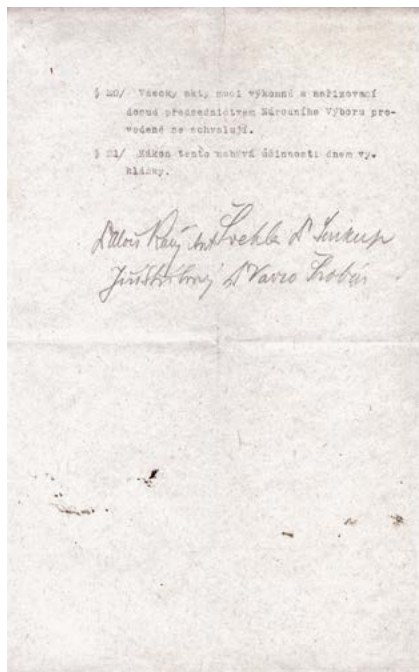 § 20/ Všecky akty moci výkonné a nařizovací
dosud předsednictvem Národního Výboru pro-
vedené se schvalují.
§ 21/ Zákon tento nabývá účinnosti dnem vy-
hlášky.
Dr Alois Rašín Ant Švehla Dr Soukup
Jiří Stříbrný Dr Vavro Šrobár